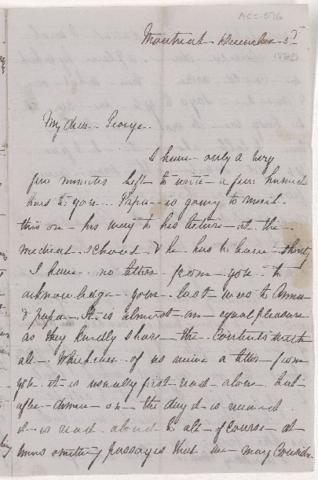 ACC-576
Montreal December 5th
My dear George
I have only a very
few minutes left to write a few hurried
lines to you. Papa is going to
this on his way to his lecture at the
Medical School & he has to leave
I have no letter from you to
acknowledge your last was to Anna
& papa. It is almost an equal pleasure
as they kindly share the contents with
all. Whichever of us receive a letter from
you it is usually first read alone but
after dinner on the day it is received
it is read aloud to all of course at
times omitting passages that we may consider